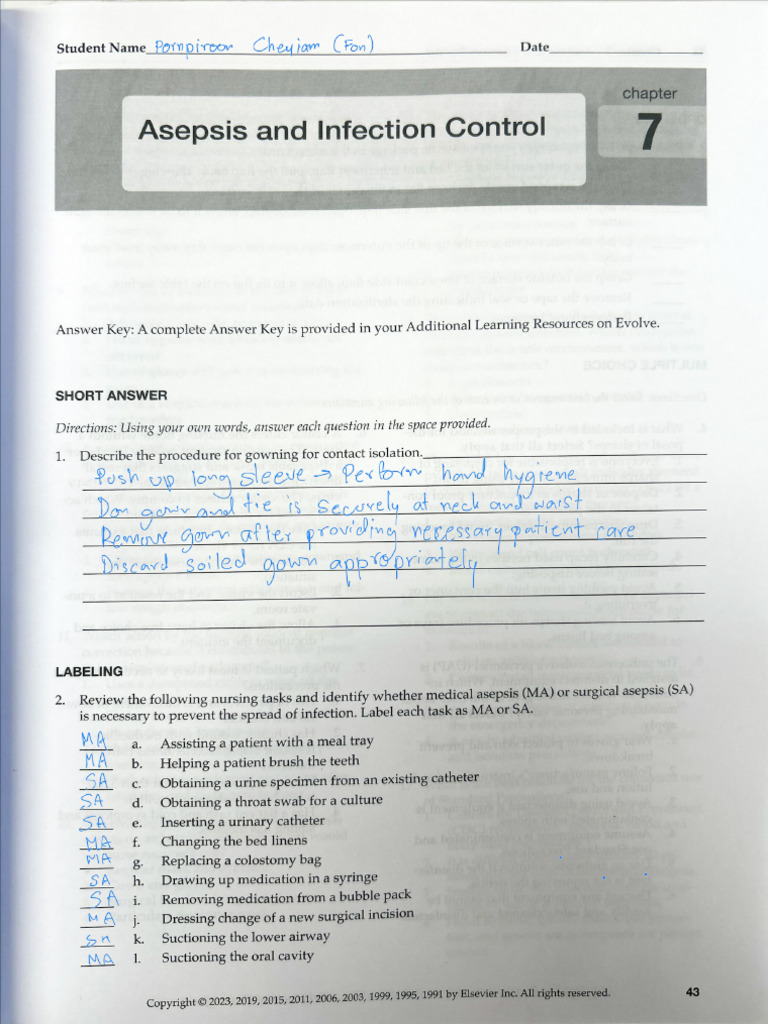 Student Name Pornpiroon Cheyiam (Fon) Date
chapter
7
Asepsis and Infection Control
Answer Key: A complete Answer Key is provided in your Additional Learning Resources on Evolve.
SHORT ANSWER
Directions: Using your own words, answer each question in the space provided.
1. Describe the procedure for gowning for contact isolation.
Push up long sleeve → Perform hand hygiene
Don gown and tie is securely at neck and waist
Remove gown after providing necessary patient care
Discard soiled gown appropriately
LABELING
2. Review the following nursing tasks and identify whether medical asepsis (MA) or surgical asepsis (SA)
is necessary to prevent the spread of infection. Label each task as MA or SA.
MA a. Assisting a patient with a meal tray
MA b. Helping a patient brush the teeth
SA c. Obtaining a urine specimen from an existing catheter
SA d. Obtaining a throat swab for a culture
SA e. Inserting a urinary catheter
MA f. Changing the bed linens
MA g. Replacing a colostomy bag
SA h. Drawing up medication in a syringe
SA i. Removing medication from a bubble pack
MA j. Dressing change of a new surgical incision
SA k. Suctioning the lower airway
MA l. Suctioning the oral cavity
Copyright © 2023, 2019, 2015, 2011, 2006, 2003, 1999, 1995, 1991 by Elsevier Inc. All rights reserved. 43